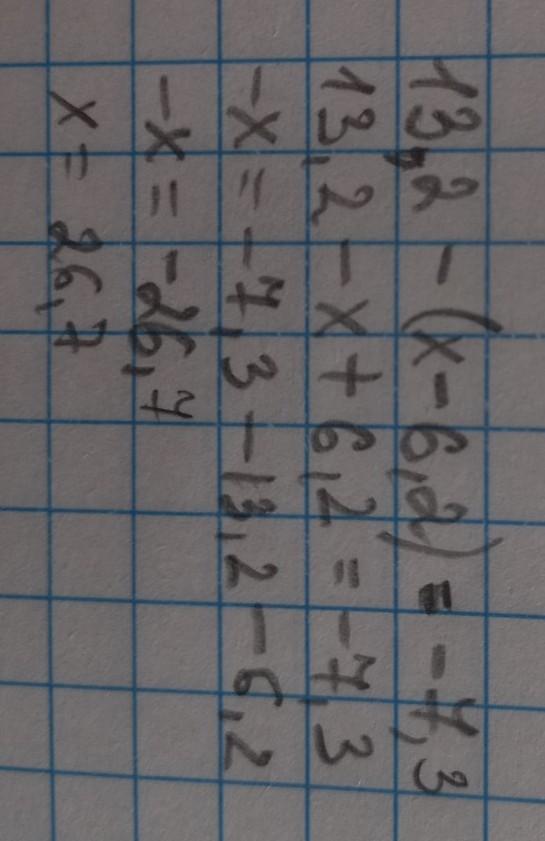 13,2 - (x - 6,2) = -7,3
13,2 - x + 6,2 = -7,3
-x = -7,3 - 13,2 - 6,2
-x = -26,7
x = 26,7